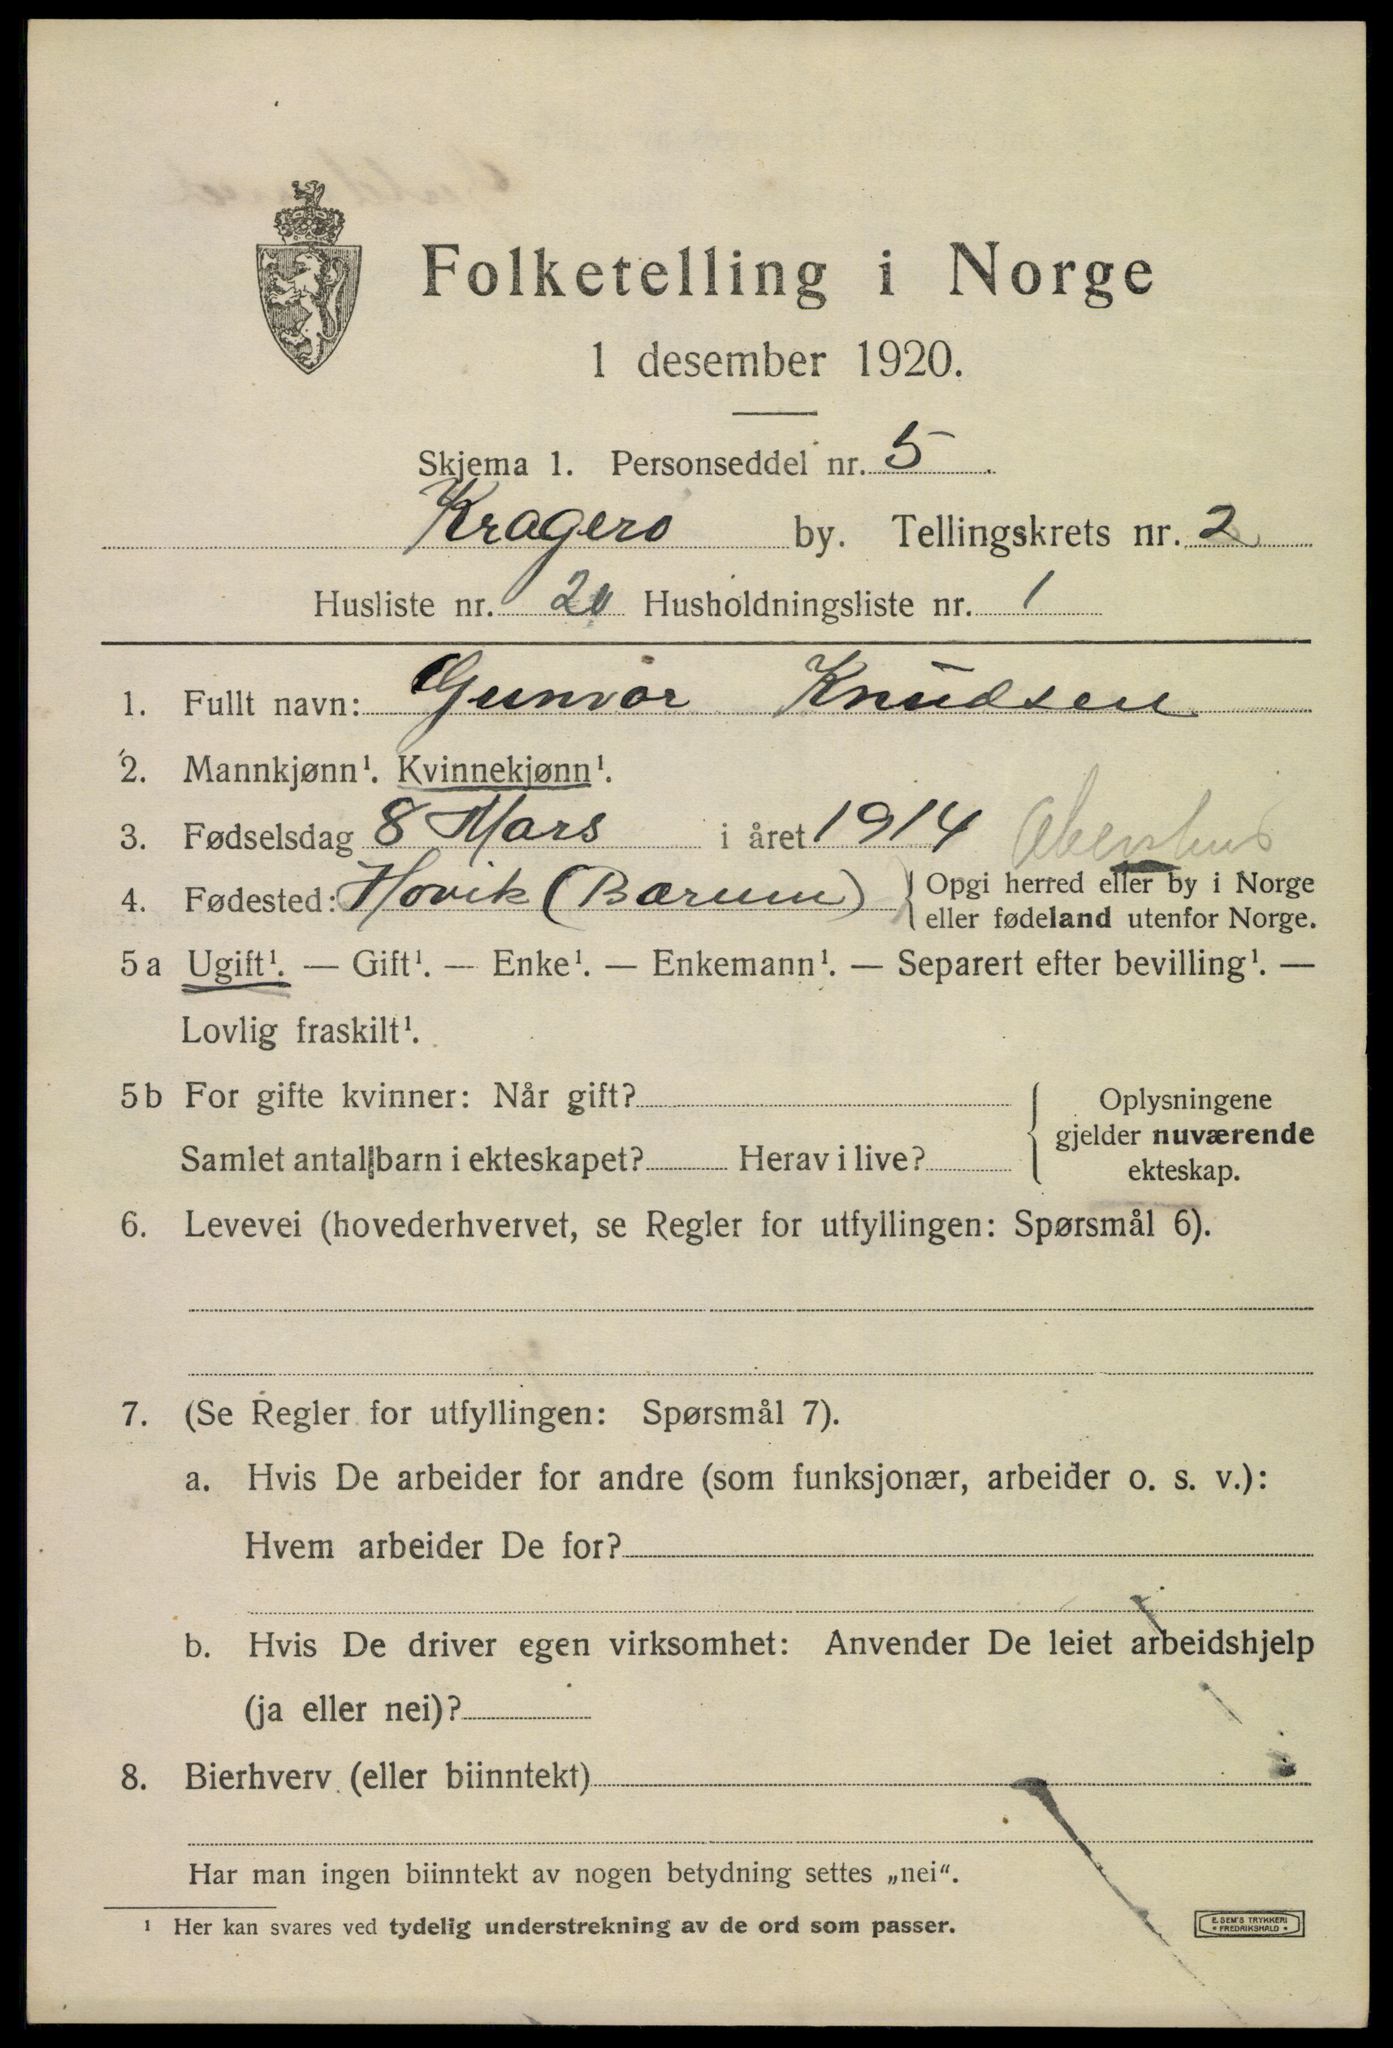 Folketelling i Norge
1 desember 1920.
Skjema 1. Personseddel nr. 5.
Kragerø by. Tellingskrets nr. 2
Husliste nr. 20 Husholdningsliste nr. 1
1. Fullt navn: Gunvor Knudsen
2. Mannkjønn¹. Kvinnekjønn¹.
3. Fødselsdag 8 Mars i året 1914 Akershus
4. Fødested: Hovik (Bærum) Opgi herred eller by i Norge
eller fødeland utenfor Norge.
5a Ugift¹. — Gift¹. — Enke¹. — Enkemann¹. — Separert efter bevilling¹. —
Lovlig fraskilt¹.
5b For gifte kvinner: Når gift?
Samlet antall barn i ekteskapet? Herav i live?
Oplysningene
gjelder nuværende
ekteskap.
6. Levevei (hovederhvervet, se Regler for utfyllingen: Spørsmål 6).
7. (Se Regler for utfyllingen: Spørsmål 7).
a. Hvis De arbeider for andre (som funksjonær, arbeider o. s. v.):
Hvem arbeider De for?
b. Hvis De driver egen virksomhet: Anvender De leiet arbeidshjelp
(ja eller nei)?
8. Bierhverv (eller biinntekt)
Har man ingen biinntekt av nogen betydning settes „nei“.
¹ Her kan svares ved tydelig understrekning av de ord som passer.
E. SEM'S TRYKKERI
* FREDRIKSHALD *